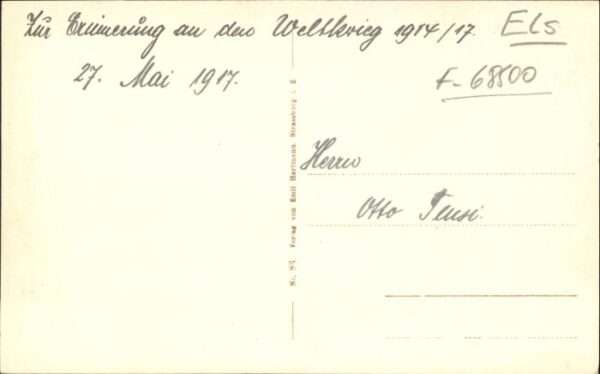 Zur Erinnerung an den Weltkrieg 1914/17.
27. Mai 1917.
Els
F-68500
Herrn
Otto
No. Verlag von Emil Hartmann, Strassburg i. E.